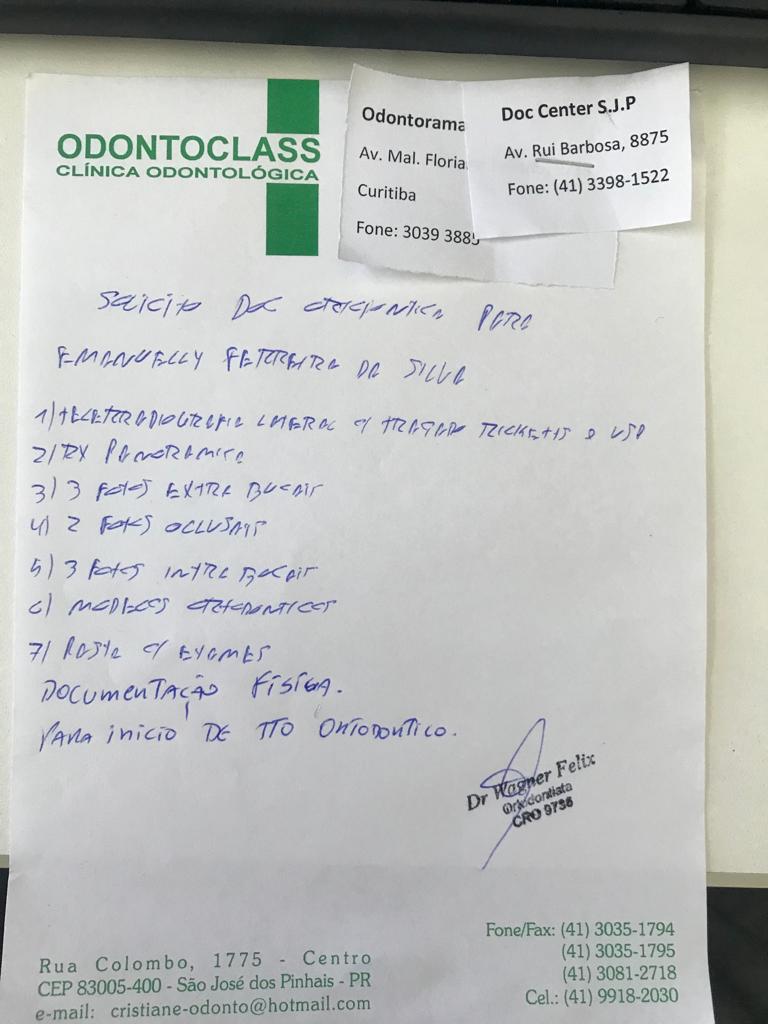 ODONTOCLASS
CLÍNICA ODONTOLÓGICA
Odontorama
Av. Mal. Floria
Curitiba
Fone: 3039 388
Doc Center S.J.P
Av. Rui Barbosa, 8875
Fone: (41) 3398-1522
Solicito Doc ortodontica para
Emanuelly Ferreira da Silva
1) Teleradiografia lateral c/ traçado Ricketts e USP
2) RX Panoramica
3) 3 fotos extra bucais
4) 2 fotos oclusais
5) 3 fotos intra bucais
6) modelos ortodonticos
7) Pasta c/ exames
Documentação Física.
Para inicio de TTO Ortodontico.
Dr Wagner Felix
Ortodontista
CRO 9736
Rua Colombo, 1775 - Centro
CEP 83005-400 - São José dos Pinhais - PR
e-mail: cristiane-odonto@hotmail.com
Fone/Fax: (41) 3035-1794
(41) 3035-1795
(41) 3081-2718
Cel.: (41) 9918-2030